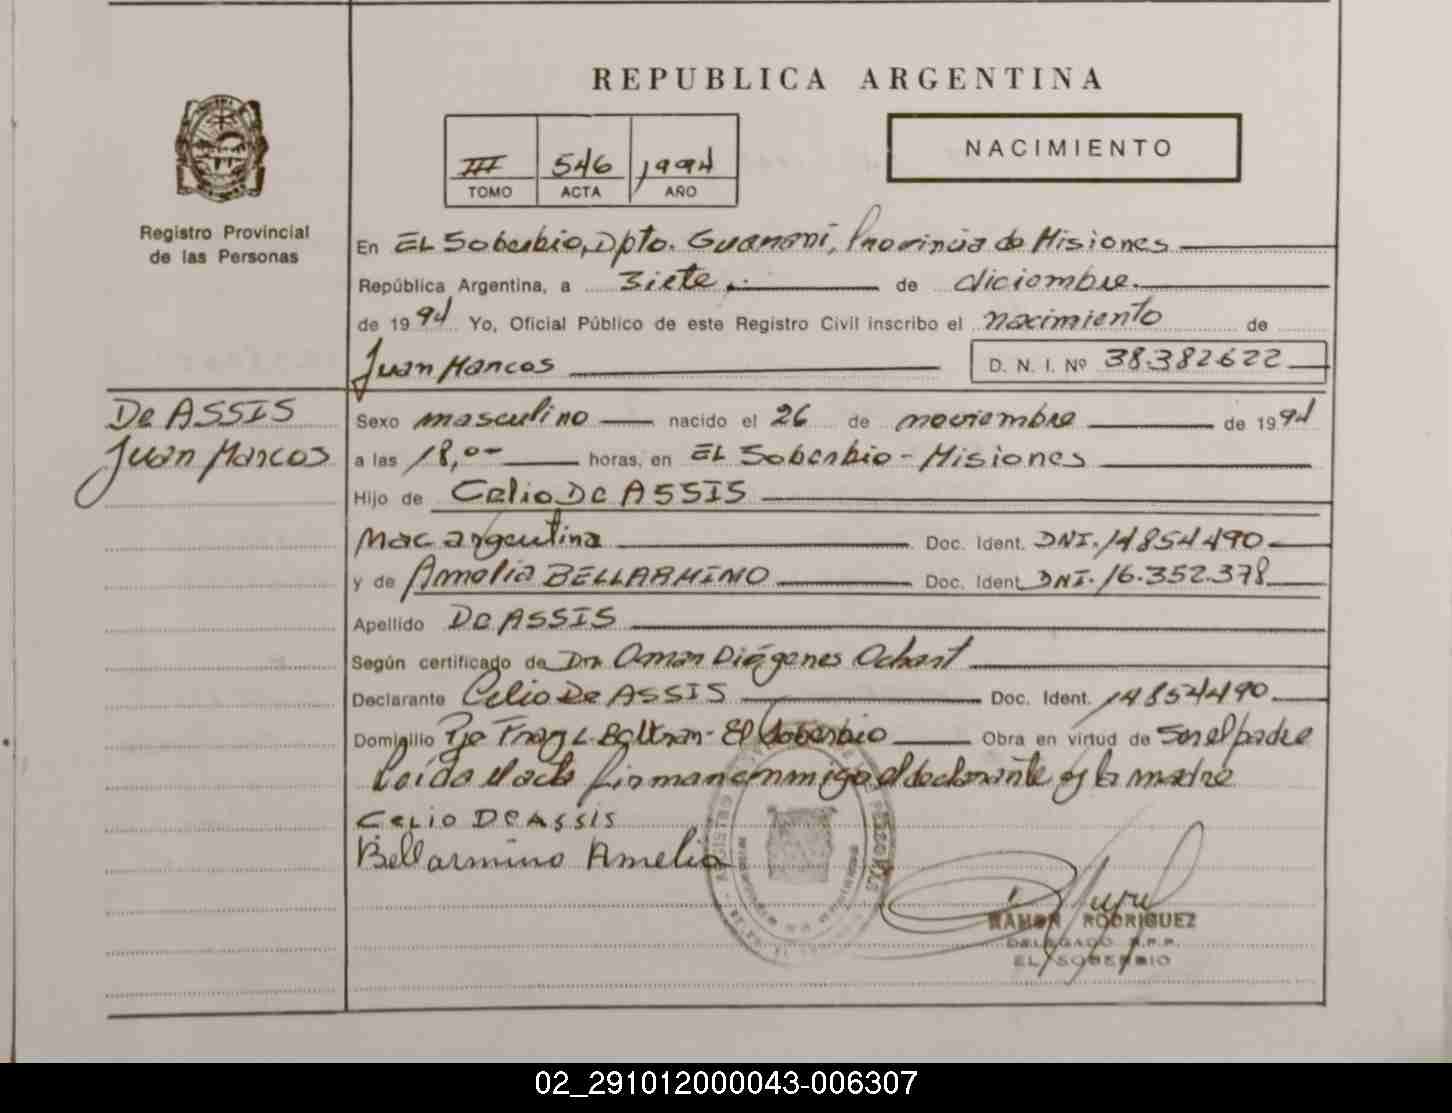 REPUBLICA ARGENTINA
NACIMIENTO
III 546 1994
TOMO ACTA AÑO
Registro Provincial
de las Personas
En EL Soberbio, Dpto. Guaraní, Provincia de Misiones
República Argentina, a siete de diciembre.
de 1994 Yo, Oficial Público de este Registro Civil inscribo el nacimiento de
Juan Marcos D. N. I. Nº 38.382.622
De ASSIS
Juan Marcos
Sexo masculino nacido el 26 de noviembre de 1994
a las 18,00 horas, en EL Soberbio - Misiones
Hijo de Celio De ASSIS
Nac argentina Doc. Ident. DNI. 14854490
y de Amelia BELLARMINO Doc. Ident. DNI. 16.352.378
Apellido De ASSIS
Según certificado de Dr. Omar Diógenes
Declarante Celio De ASSIS Doc. Ident. 14854490
Domicilio Pje Fray L. Beltran - El Soberbio Obra en virtud de ser el padre
Leída el acta firman conmigo el declarante y la madre
CELIO DE ASSIS
Bellarmino Amelia
RAMON RODRIGUEZ
DELEGADO R.P.P.
EL SOBERBIO
02_291012000043-006307